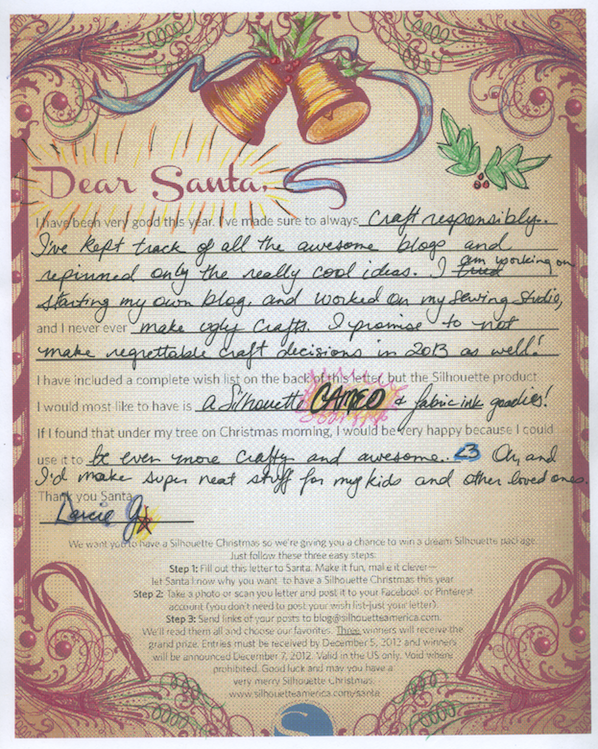 Dear Santa,
I have been very good this year. I've made sure to always craft responsibly..
I've kept track of all the awesome blogs and
repinned only the really cool ideas. I am working on
starting my own blog, and worked on my sewing studio,
and I never ever make ugly crafts. I promise to not
make regrettable craft decisions in 2013 as well!
I have included a complete wish list on the back of this letter, but the Silhouette product
I would most like to have is a Silhouette CAMEO & fabric ink goodies!
If I found that under my tree on Christmas morning, I would be very happy because I could
use it to be even more crafty and awesome.. <3 Oh, and
I'd make super neat stuff for my kids and other loved ones.
Thank you Santa,
Darcie J.
We want you to have a Silhouette Christmas so we're giving you a chance to win a dream Silhouette package.
Just follow these three easy steps:
Step 1: Fill out this letter to Santa. Make it fun, make it clever—
let Santa know why you want to have a Silhouette Christmas this year
Step 2: Take a photo or scan you letter and post it to your Facebook or Pinterest
account (you don't need to post your wish list-just your letter).
Step 3: Send links of your posts to blog@silhouetteamerica.com.
We'll read them all and choose our favorites. Three winners will receive the
grand prize. Entries must be received by December 5, 2012 and winners
will be announced December 7, 2012. Valid in the US only. Void where
prohibited. Good luck and may you have a
very merry Silhouette Christmas.
www.silhouetteamerica.com/santa